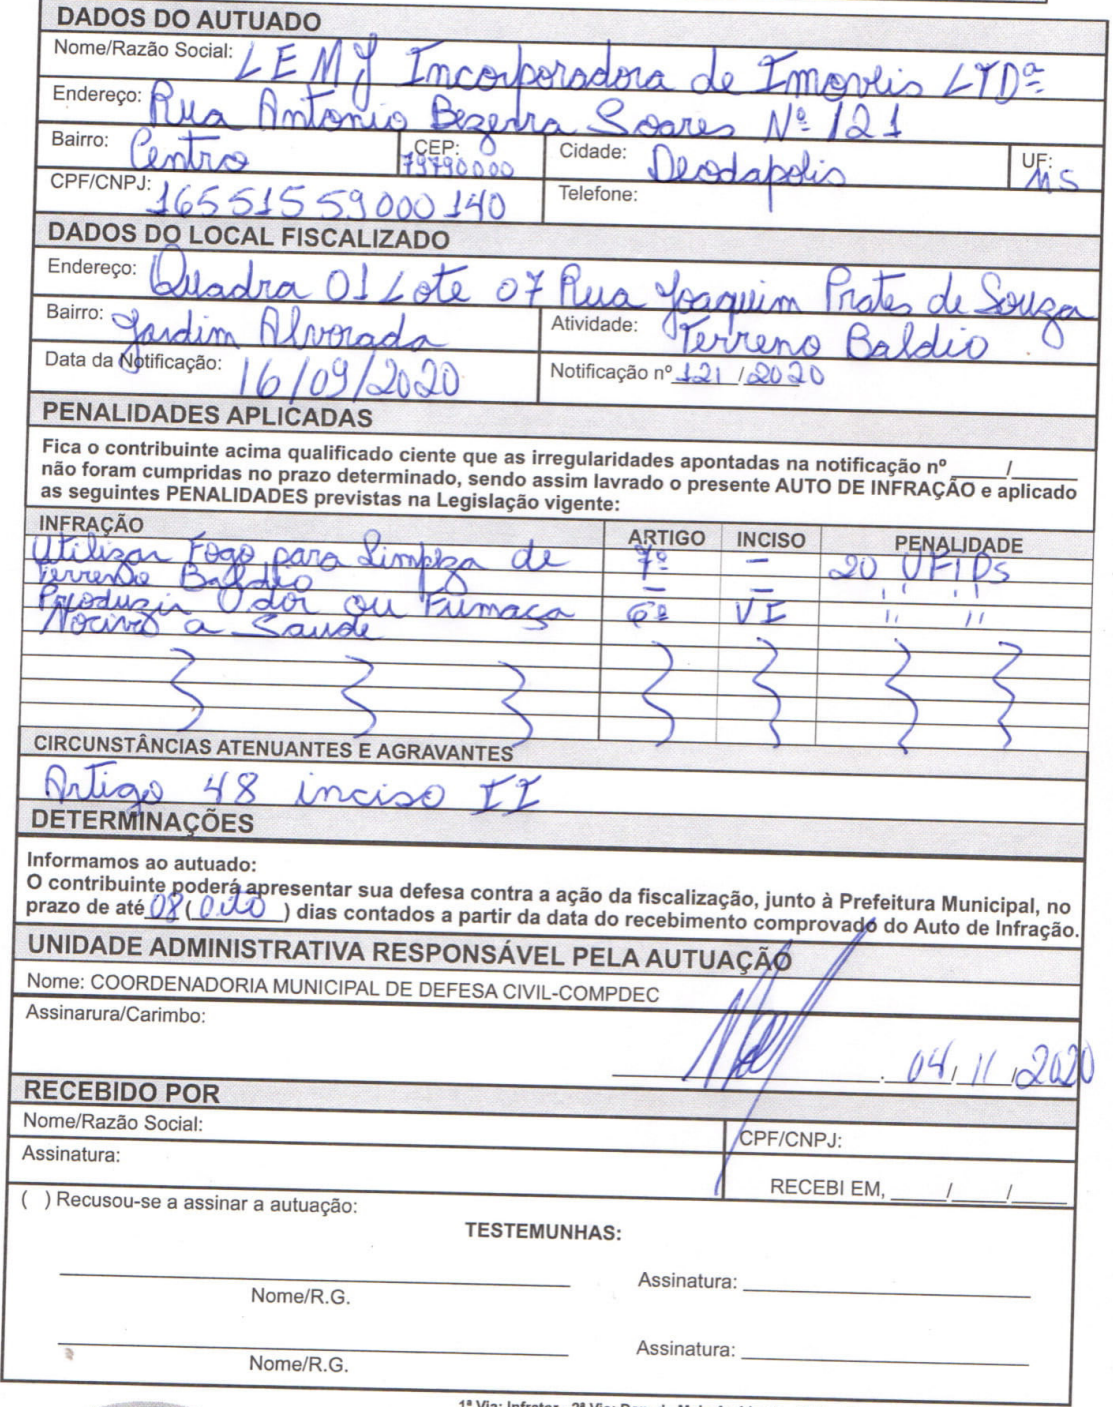 DADOS DO AUTUADO
Nome/Razão Social: LEMJ Incorporadora de Imoveis LTDª
Endereço: Rua Antonio Bezerra Soares Nº 121
Bairro: Centro CEP: 79790000 Cidade: Deodapolis UF: MS
CPF/CNPJ: 16551559000140 Telefone:
DADOS DO LOCAL FISCALIZADO
Endereço: Quadra 01 Lote 07 Rua Joaquim Prates de Souza
Bairro: Jardim Alvorada Atividade: Terreno Baldio
Data da Notificação: 16/09/2020 Notificação nº 121 /2020
PENALIDADES APLICADAS
Fica o contribuinte acima qualificado ciente que as irregularidades apontadas na notificação nº ____/____
não foram cumpridas no prazo determinado, sendo assim lavrado o presente AUTO DE INFRAÇÃO e aplicado
as seguintes PENALIDADES previstas na Legislação vigente:
INFRAÇÃO ARTIGO INCISO PENALIDADE
Utilizar Fogo para Limpeza de 7º – 20 UFIDs
Terreno Baldio – – " "
Produzir Odor ou Fumaça 6º VI " "
Nociva a Saude
CIRCUNSTÂNCIAS ATENUANTES E AGRAVANTES
Artigo 48 inciso II
DETERMINAÇÕES
Informamos ao autuado:
O contribuinte poderá apresentar sua defesa contra a ação da fiscalização, junto à Prefeitura Municipal, no
prazo de até 08 (oito) dias contados a partir da data do recebimento comprovado do Auto de Infração.
UNIDADE ADMINISTRATIVA RESPONSÁVEL PELA AUTUAÇÃO
Nome: COORDENADORIA MUNICIPAL DE DEFESA CIVIL-COMPDEC
Assinarura/Carimbo:
04/11/2020
RECEBIDO POR
Nome/Razão Social: CPF/CNPJ:
Assinatura:
RECEBI EM, ____/____/____
( ) Recusou-se a assinar a autuação:
TESTEMUNHAS:
Assinatura: ____
Nome/R.G.
Assinatura: ____
Nome/R.G.
1ª Via: Infrator - 2ª Via: